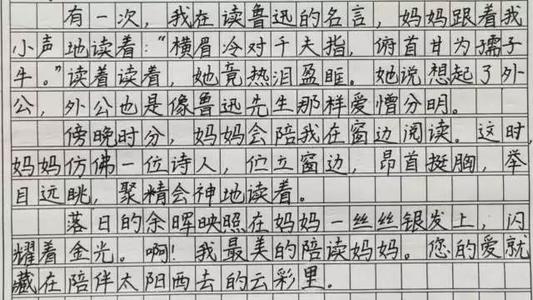 有一次，我在读鲁迅的名言，妈妈跟着我
小声地读着：“横眉冷对千夫指，俯首甘为孺子
牛。”读着读着，她竟热泪盈眶。她说想起了外
公，外公也是像鲁迅先生那样爱憎分明。
傍晚时分，妈妈会陪我在窗边阅读。这时，
妈妈仿佛一位诗人，伫立窗边，昂首挺胸，举
目远眺，聚精会神地读着。
落日的余晖映照在妈妈一丝丝银发上，闪
耀着金光。啊！我最美的陪读妈妈。您的爱就
藏在陪伴太阳西去的云彩里。